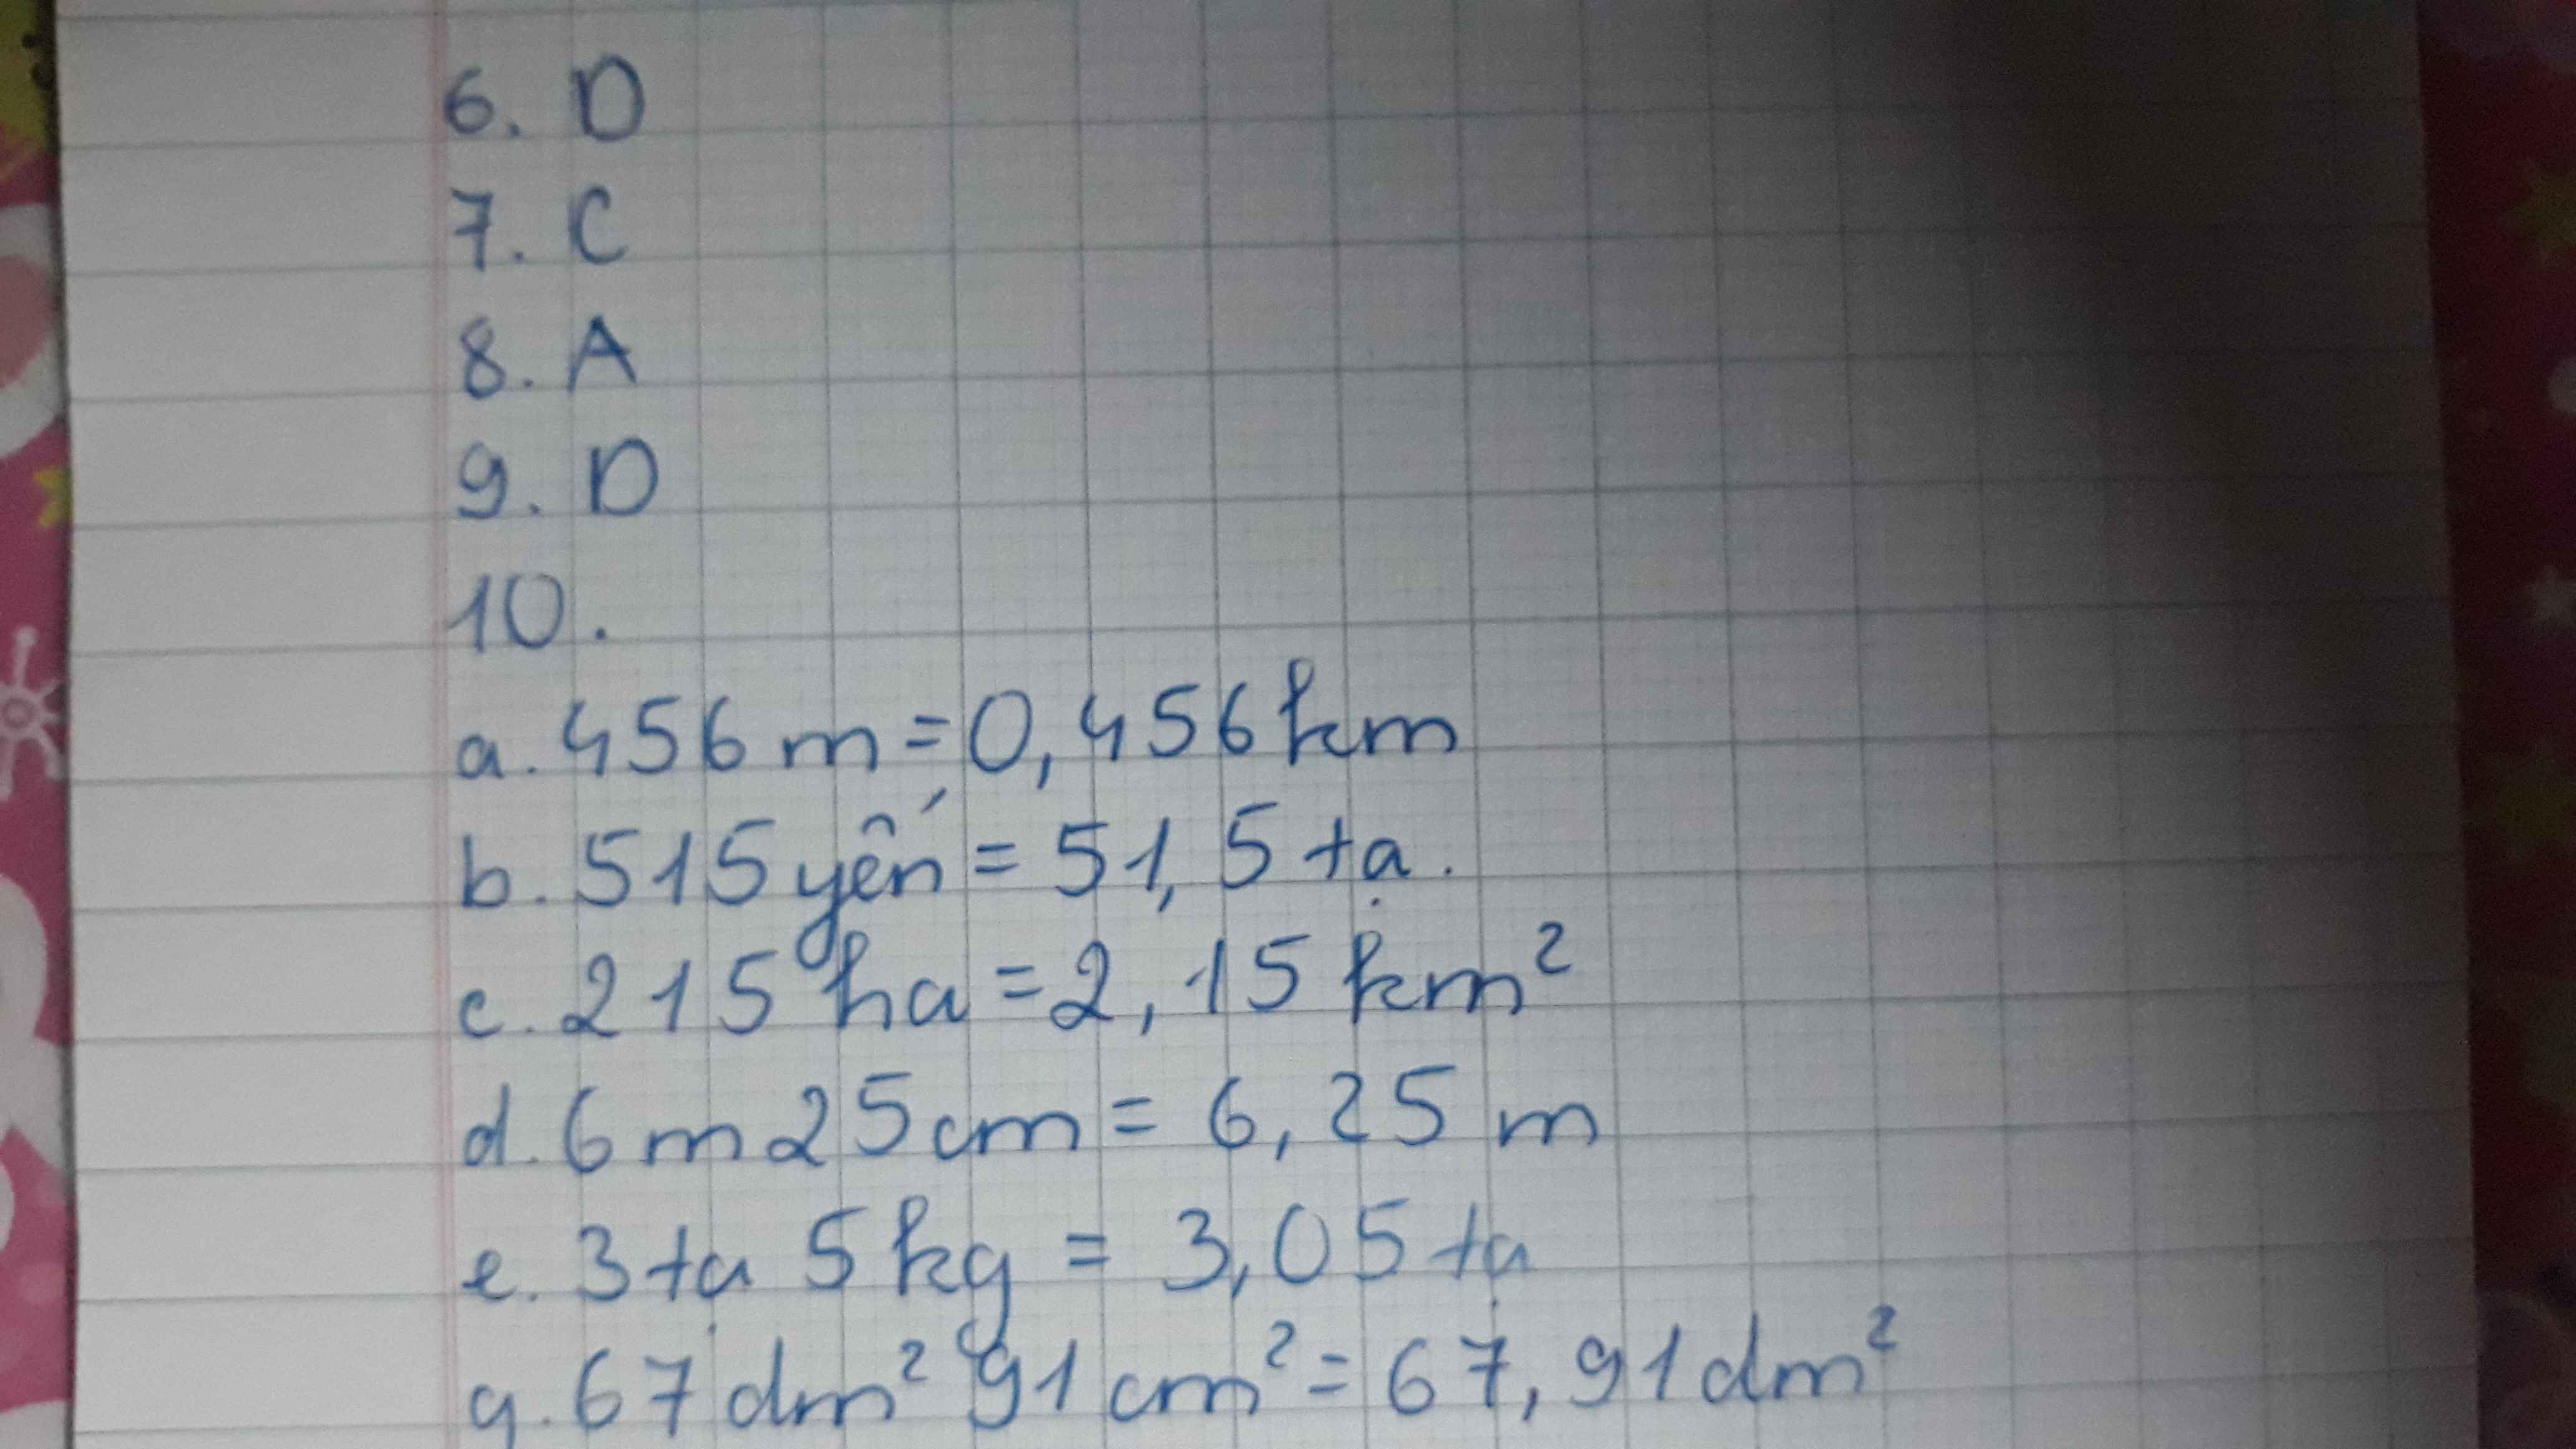 6. D
7. C
8. A
9. D
10.
a. 456 m = 0,456 km
b. 515 yến = 51,5 tạ.
c. 215 ha = 2,15 km²
d. 6 m 25 cm = 6,25 m
e. 3 tạ 5 kg = 3,05 tạ
g. 67 dm² 91 cm² = 67,91 dm²